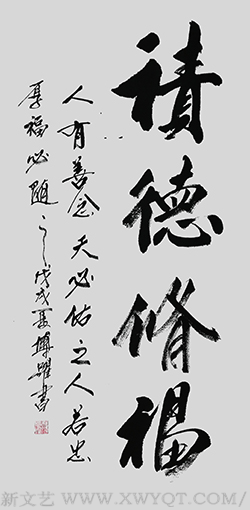 積德脩福
人有善念天必佑之人若忠
厚福必随之戊戌夏博躍書
新文艺 / WWW.XWYQT.COM/